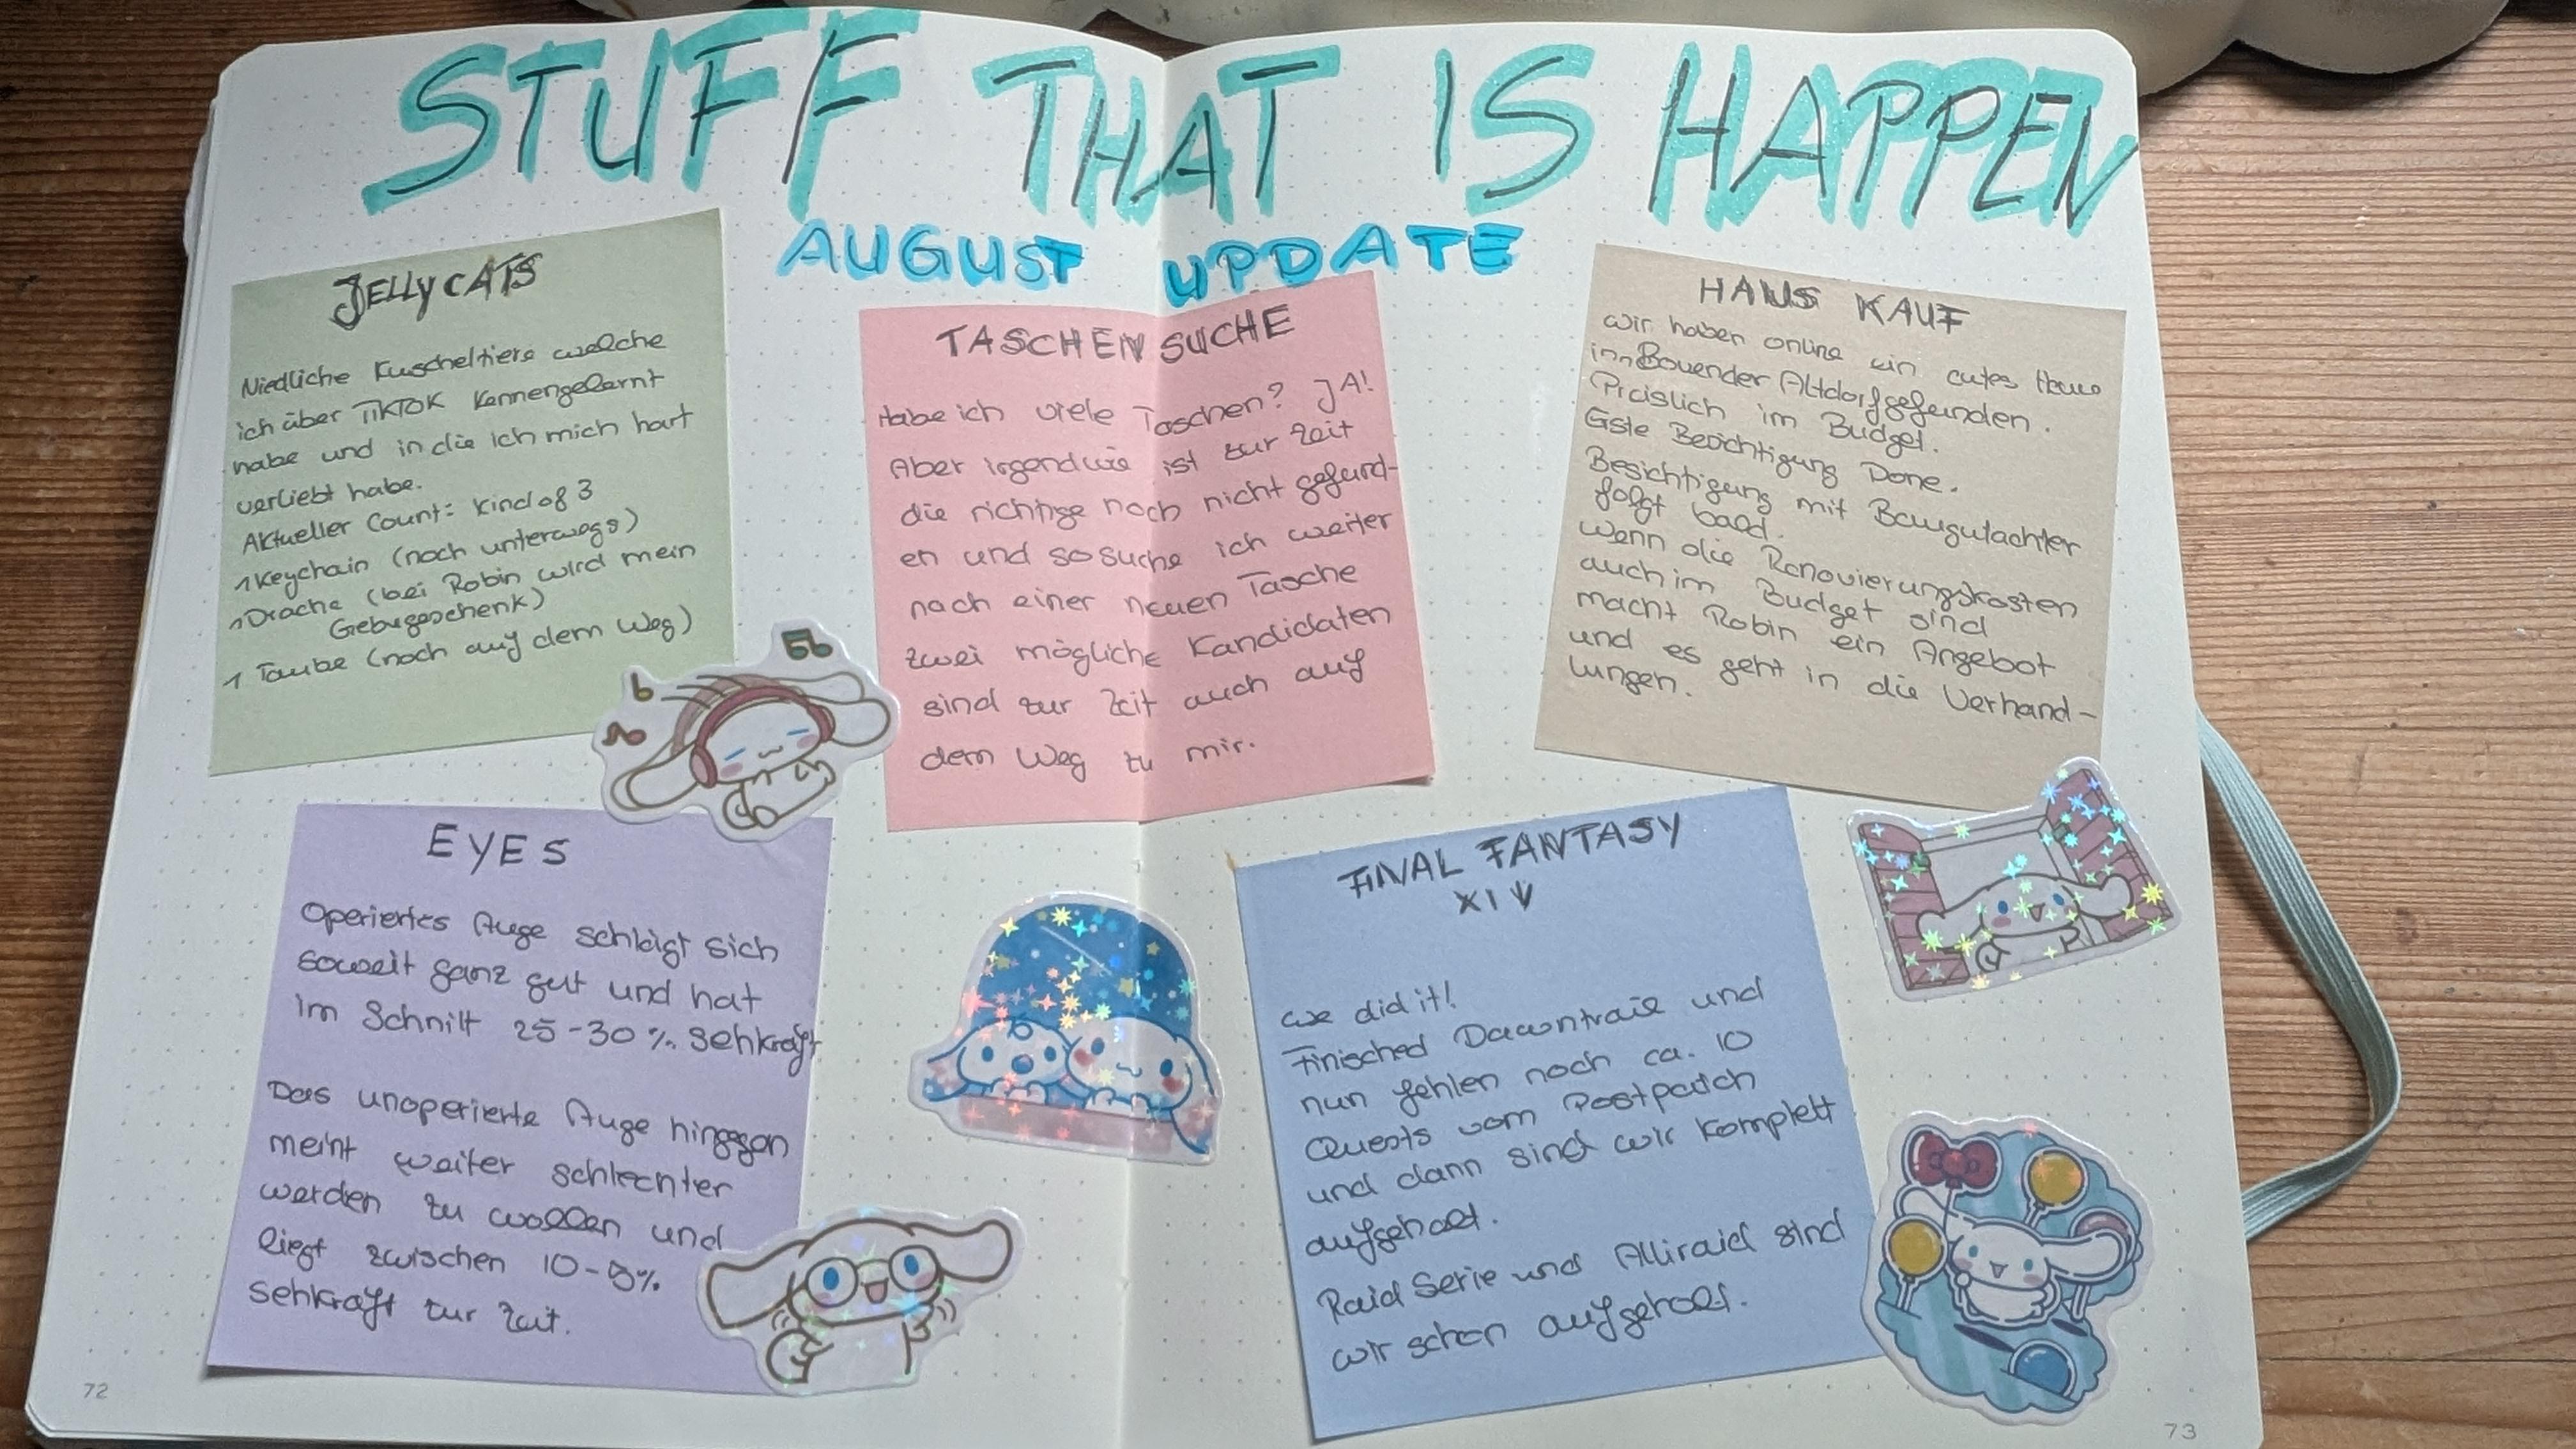 STUFF THAT IS HAPPEN
AUGUST UPDATE
JELLYCATS
Niedliche Kuscheltiere welche
ich über TIKTOK Kennengelernt
habe und in die ich mich hart
verliebt habe.
Aktueller Count: kind of 3
1 Keychain (noch unterwegs)
1 Drache (bei Robin wird mein
Gebugeschenk)
1 Taube (noch auf dem Weg)
TASCHEN SUCHE
Habe ich viele Taschen? JA!
Aber irgendwie ist zur Zeit
die richtige noch nicht gefund-
en und so suche ich weiter
nach einer neuen Tasche
zwei mögliche Kandidaten
sind zur Zeit auch auf
dem Weg zu mir.
HAUS KAUF
wir haben online ein gutes Haus
inn Bovender Altdorf gefunden.
Preislich im Budget.
Erste Besichtigung Done.
Besichtigung mit Baugutachter
folgt bald.
Wenn die Renovierungskosten
auch im Budget sind
macht Robin ein Angebot
und es geht in die Verhand-
lungen.
EYES
Operiertes Auge schlägt sich
soweit ganz gut und hat
im Schnitt 25-30% Sehkraft
Das unoperierte Auge hingegen
meint weiter schlechter
werden zu wollen und
liegt zwischen 10-8%
Sehkraft zur Zeit.
FINAL FANTASY
XIV
we did it!
Finisched Dawntrail und
nun fehlen noch ca. 10
Quests vom Postpatch
und dann sind wir komplett
aufgeholt.
Raid Serie und Alliraid sind
wir schon aufgeholt.
72
73